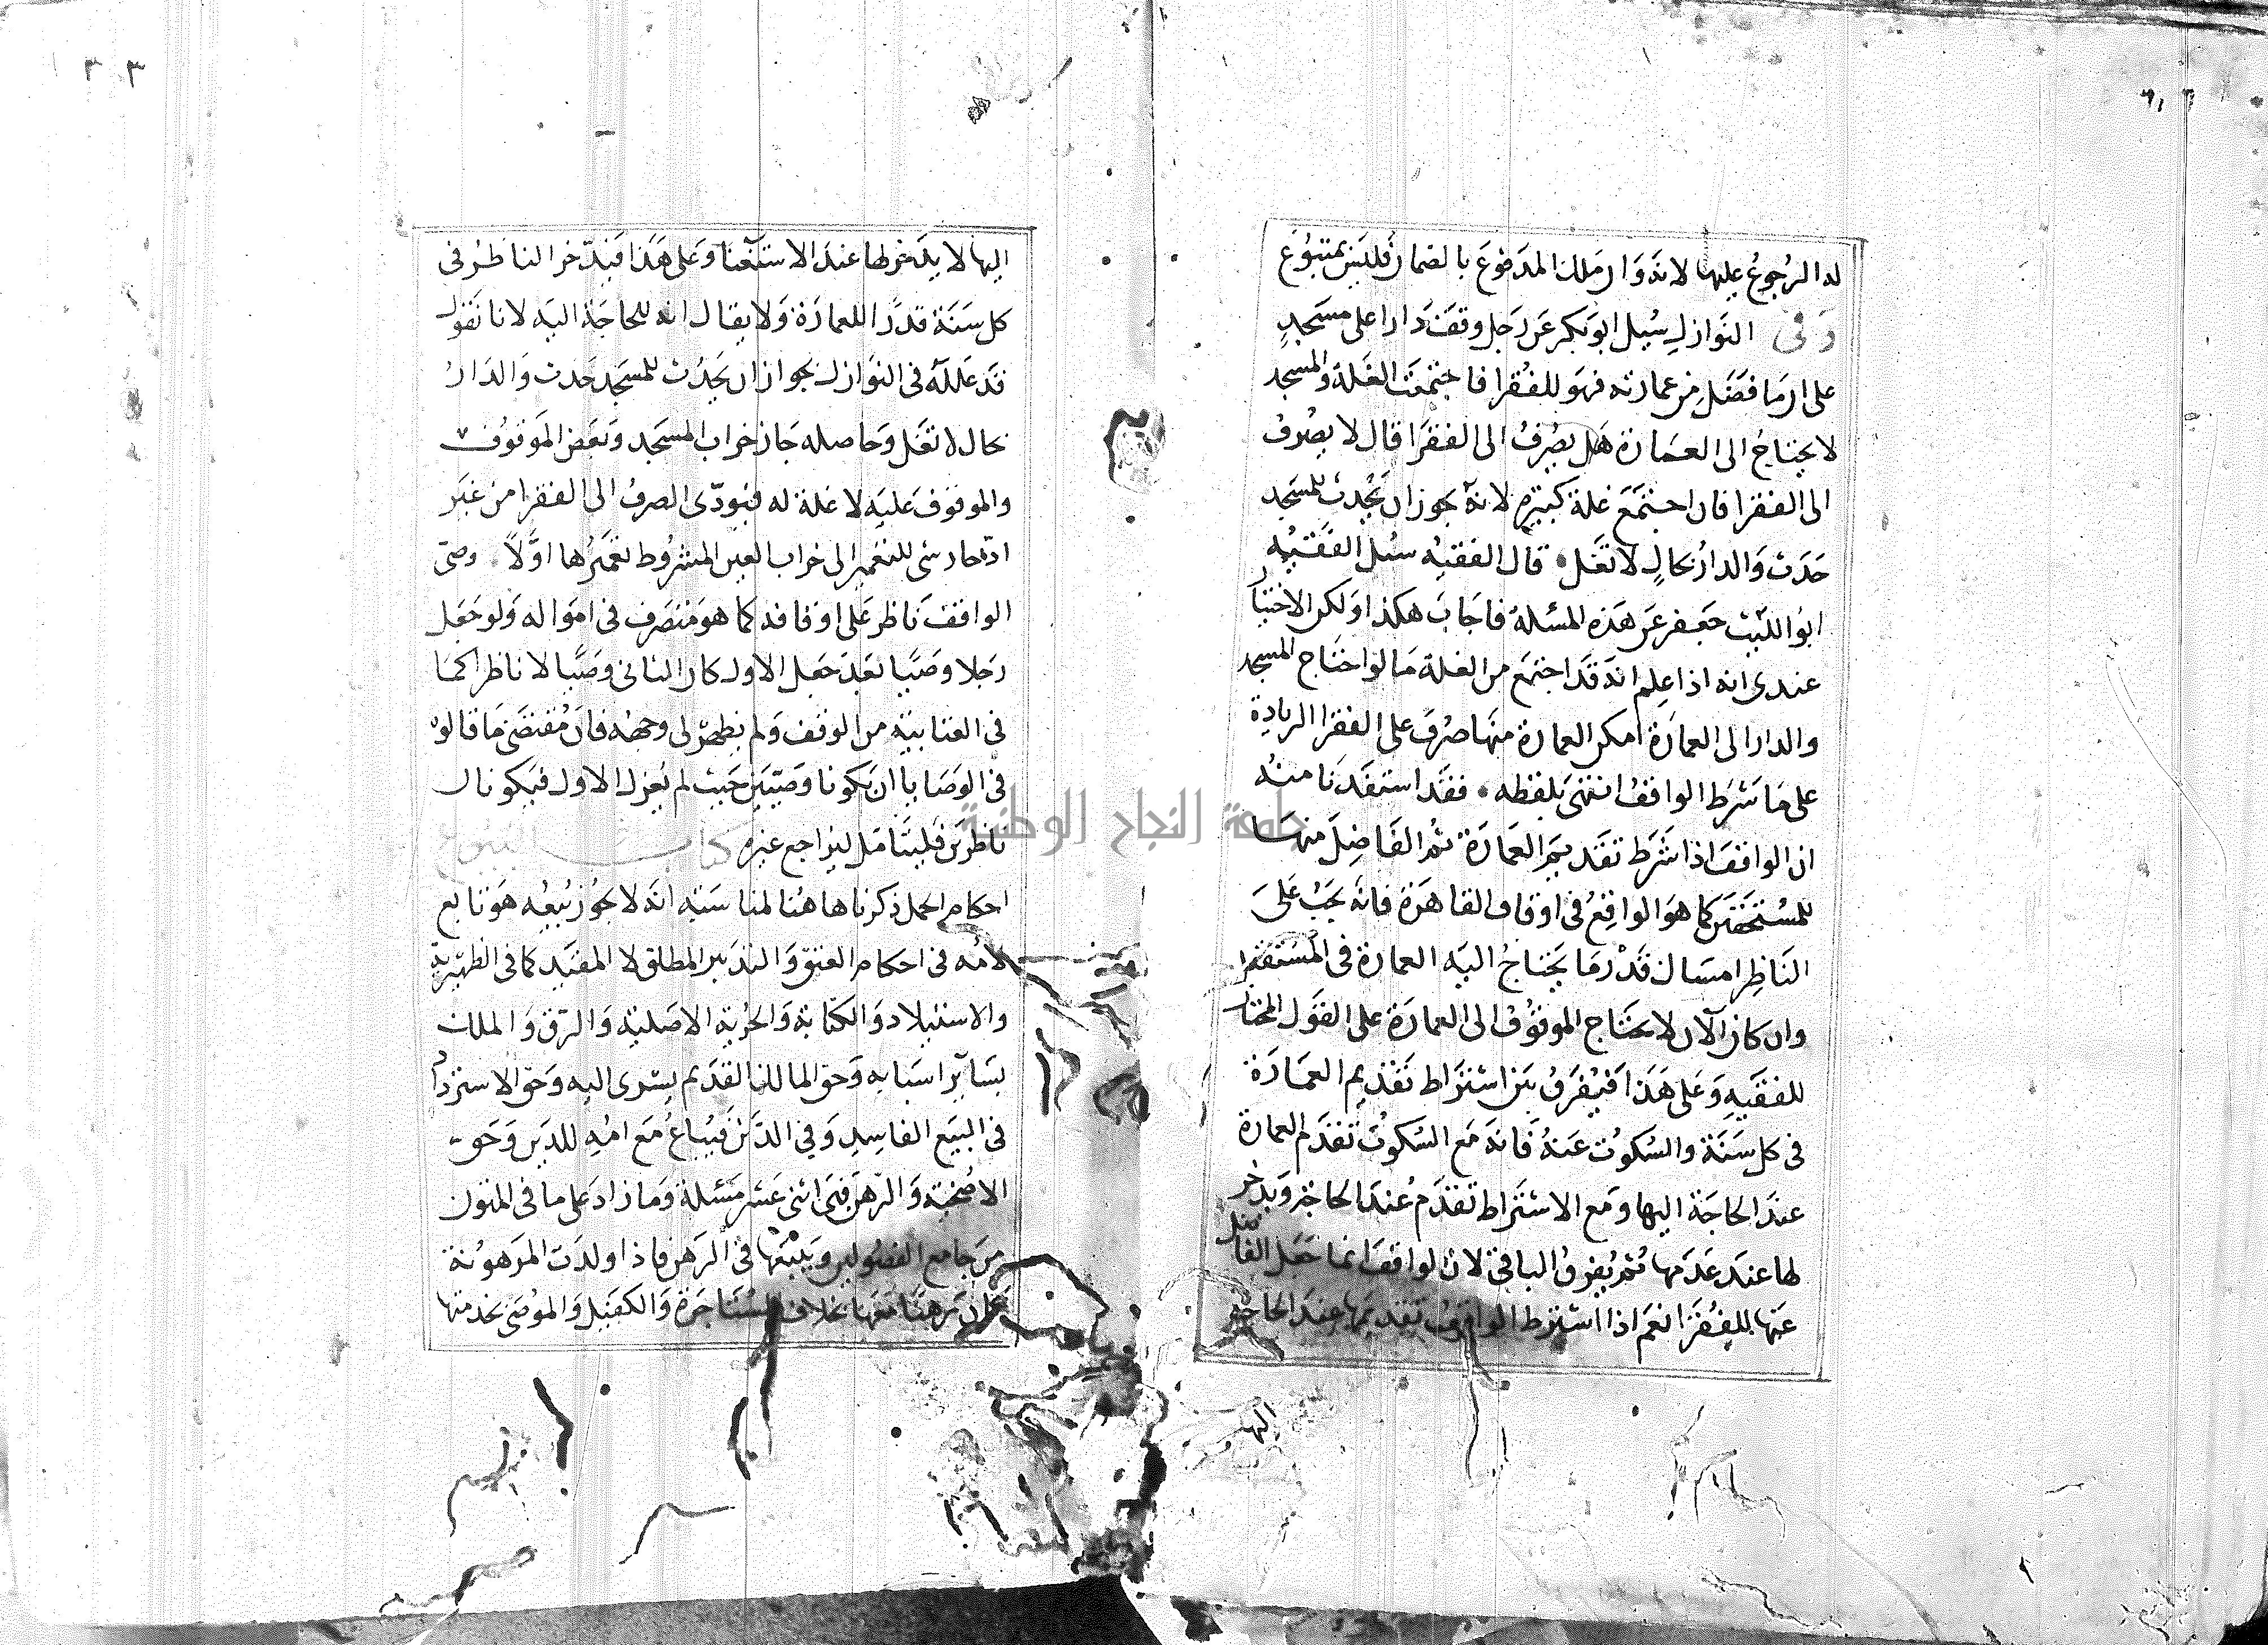 له الرجوع عليها لانه وان ملك المدفوع بالضمان فليس بمتبوع
وفى النوازل سئل ابو بكر عن رجل وقف دارا على مسجد
على ان ما فضل من عمارته فهو للفقرا فاجتمعت الغلة والمسجد
لا يحتاج الى العمارة هل يصرف الى الفقرا قال لا يصرف
الى الفقرا فان اجتمع غلة كبيرة لانه يجوز ان يحدث للمسجد
حدث والدار بحال لا تغل قال الفقيه سئل الفقيه
ابو الليث جعفر عن هذه المسئلة فاجاب هكذا ولكن الاختيا
عندى انه اذا علم انه قد اجتمع من الغلة ما لو احتاج المسجد
والدار الى العمارة امكن العمارة منها صرف على الفقرا الزيادة
على ما شرط الواقف انتهى بلفظه فقد استفدنا منه
ان الواقف اذا شرط تقديم العمارة ثم الفاضل منها
للمستحقين كما هو الواقع فى اوقاف القاهرة فانه يجب على
الناظر امساك قدر ما يحتاج اليه العمارة فى المستقبل
وان كان الآن لا يحتاج الموقوف الى العمارة على القول المختار
للفقيه وعلى هذا فيفرق بين اشتراط تقديم العمارة
فى كل سنة والسكوت عنه فانه مع السكوت تقدم العمارة
عند الحاجة اليها ومع الاشتراط تقدم عند الحاجة ويدخر
لها عند عدمها ثم يفرق الباقى لان الواقف انما جعل الفاضل
عنها للفقرا نعم اذا اشترط الواقف تقديمها عند الحاجة
اليها
اليها لا يدخر لها عند الاستغنا وعلى هذا فيدخر الناظر فى
كل سنة قدرا للعمارة ولا يقال انه للحاجة اليه لانا نقول
قد علله فى النوازل بجواز ان يحدث للمسجد حدث والدار
بحال لا تغل وحاصله جاز خراب المسجد وبعض الموقوف
والموقوف عليه لا غلة له فيودى الصرف الى الفقرا من غير
ادخار شى للتعمير الى خراب العين المشروط تعميرها اولا وصى
الواقف ناظر على اوقافه كما هو متصرف فى امواله ولو جعل
رجلا وصيا بعد جعل الاول كان الثانى وصيا لا ناظرا كما
فى العتابية من الوقف ولم يظهر لى وجهه فان مقتضى ما قالوه
فى الوصايا ان يكونا وصيين حيث لم يعزل الاول فيكونان
ناظرين فليتامل ليراجع غيره كتاب البيوع
احكام الحمل ذكرناها هنا لمناسبته انه لا يجوز بيعه هو تابع
لامه فى احكام العتق والتدبير المطلق لا المقيد كما فى الظهيرية
والاستيلاد والكتابة والحرية الاصلية والرق والملك
بسائر اسبابه وحق المالك القديم يسرى اليه وحق الاسترداد
فى البيع الفاسد وفي الدين فيباع مع امه للدين وحق
الاضحية والرهن فهى اثنى عشر مسئلة وما زاد على ما فى المتون
من جامع الفصولين ويتبعها فى الرهن فاذا ولدت المرهونة
كان رهنا معها بخلاف المستاجرة والكفيل والموصى بخدمتها
٣٠٣
جامعة النجاح الوطنية